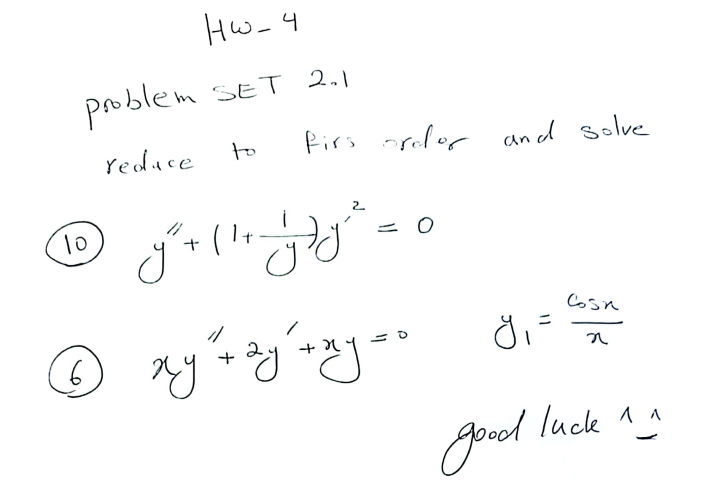 HW-4
problem SET 2.1
reduce to firs order and solve
10 y'' + (1 + 1/y) y'^2 = 0
6 xy'' + 2y' + xy = 0 y₁ = cosx / x
good luck ^_^